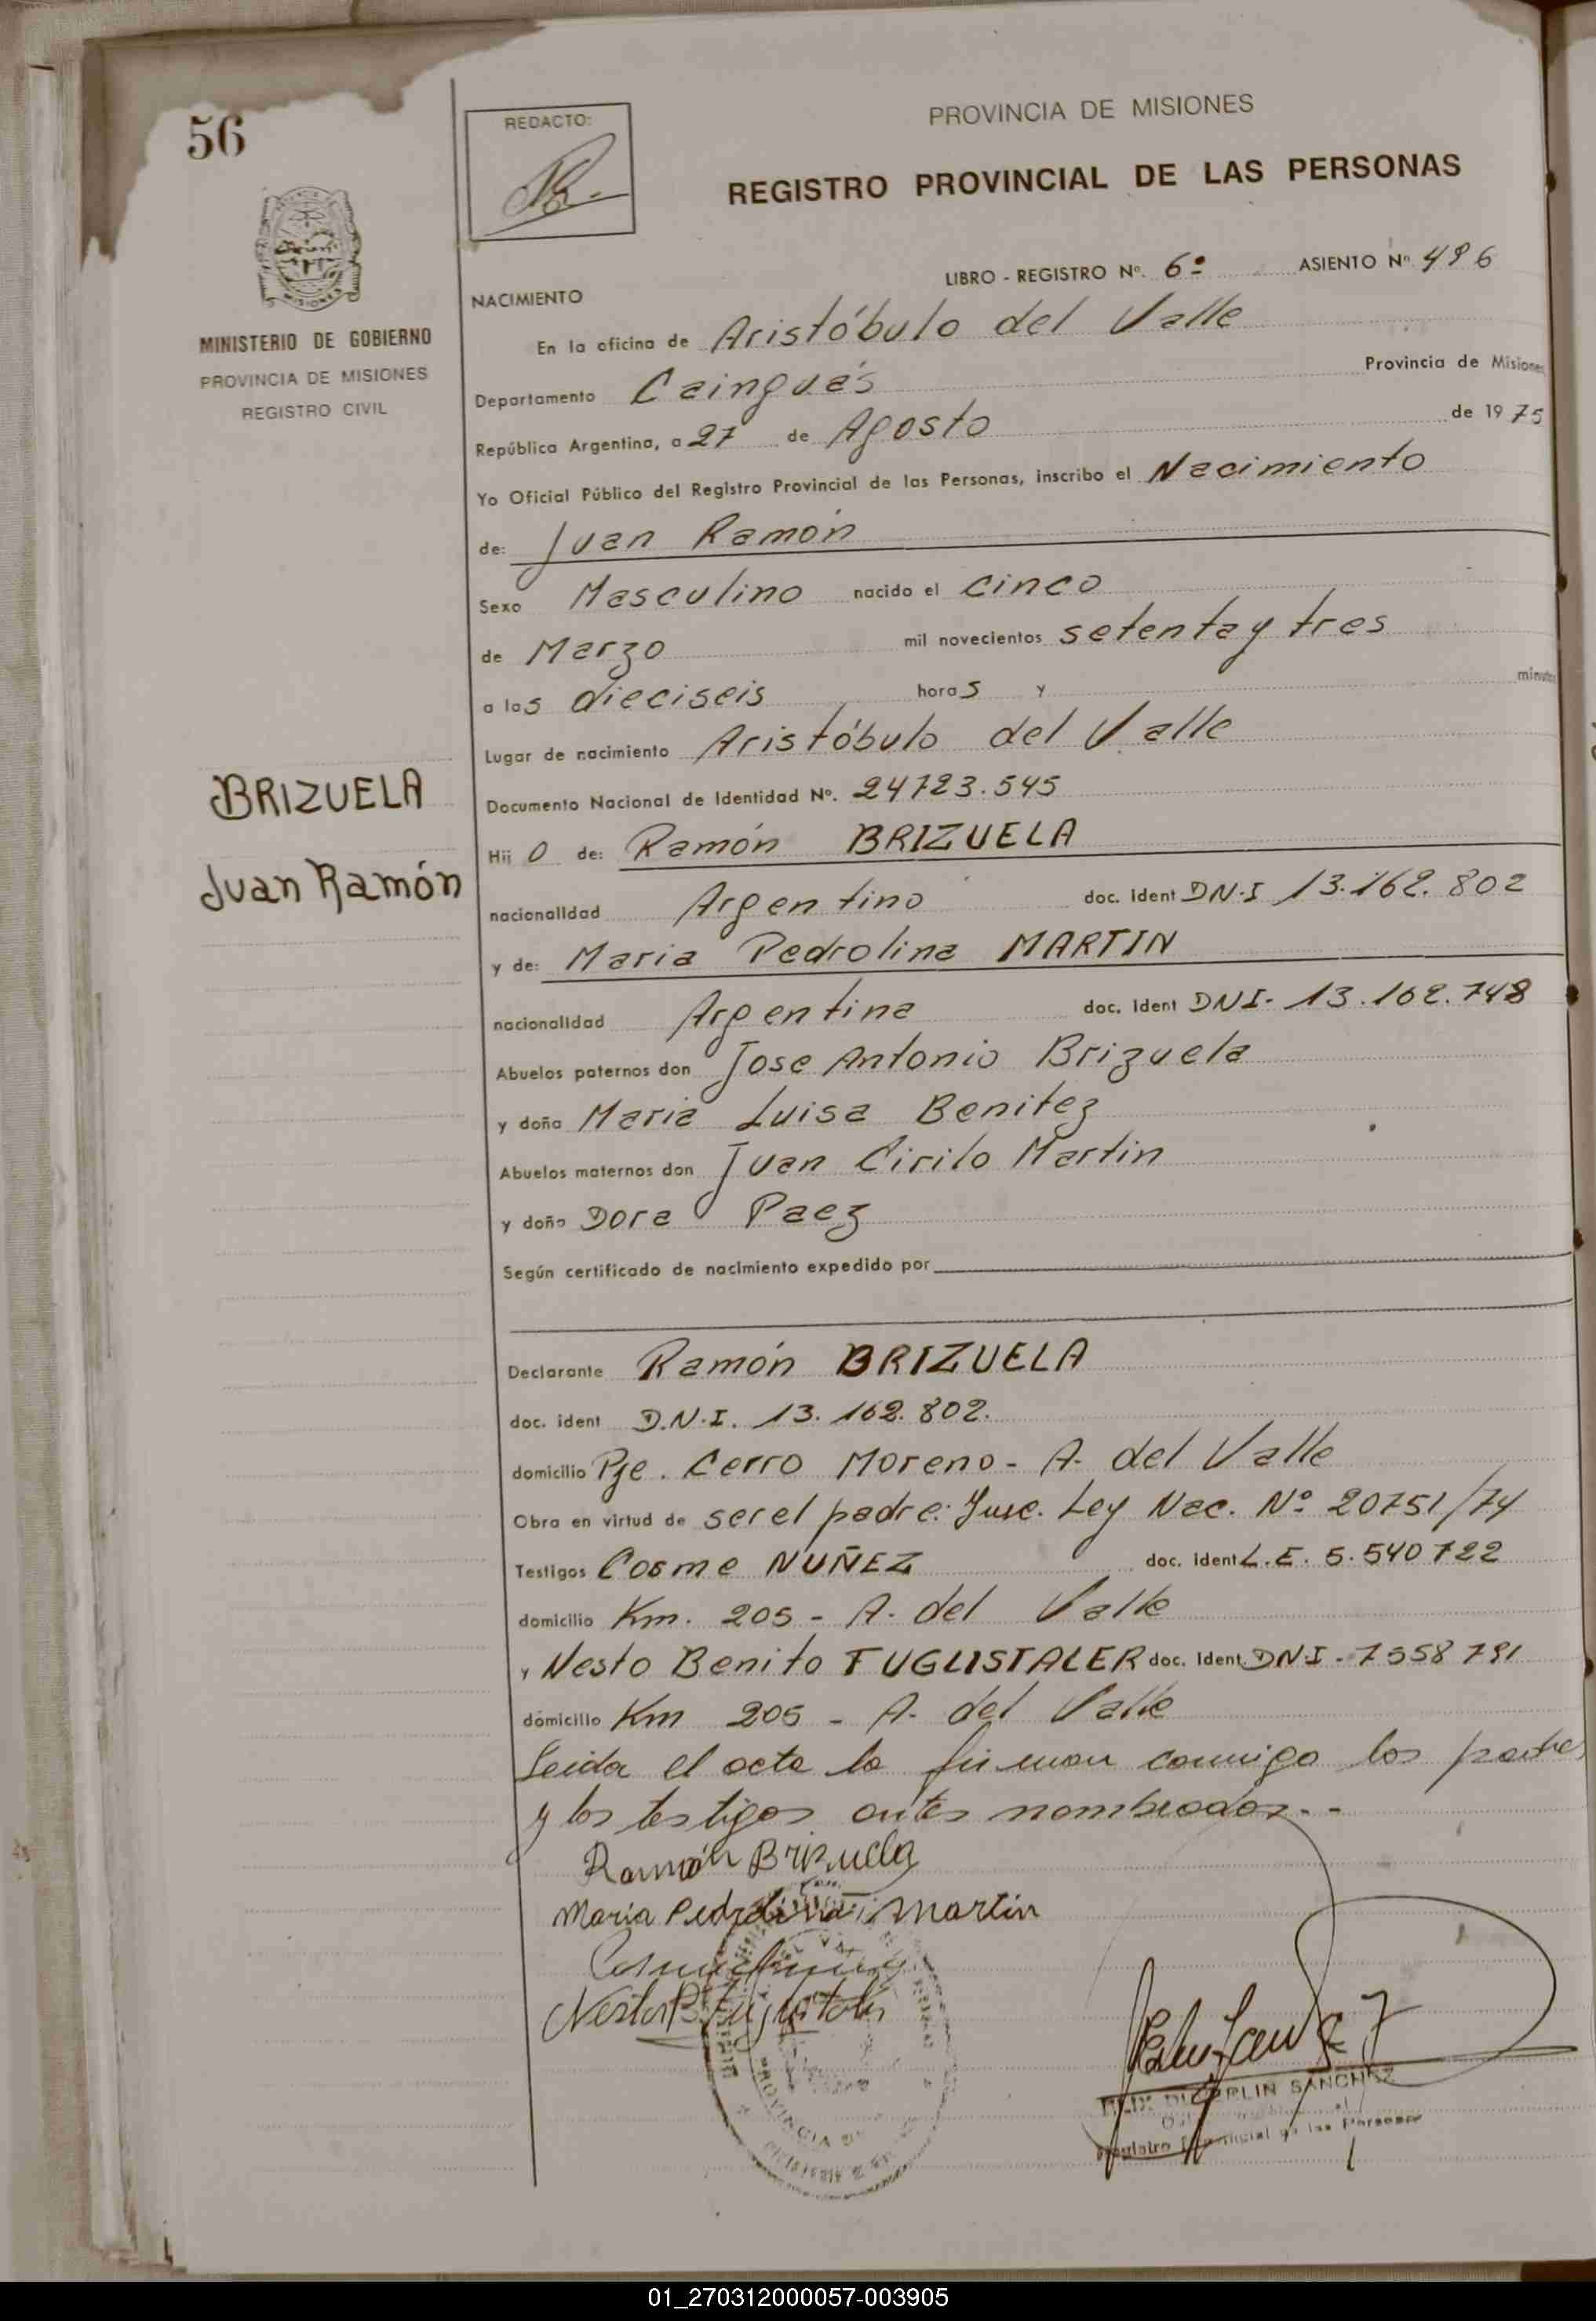 56
REDACTO:
PROVINCIA DE MISIONES
REGISTRO PROVINCIAL DE LAS PERSONAS
LIBRO - REGISTRO Nº. 6º ASIENTO Nº 496
MISIONES
MINISTERIO DE GOBIERNO
PROVINCIA DE MISIONES
REGISTRO CIVIL
NACIMIENTO
En la oficina de Aristóbulo del Valle
Departamento Cainguás Provincia de Misiones
República Argentina, a 27 de Agosto de 1975
Yo Oficial Público del Registro Provincial de las Personas, inscribo el Nacimiento
de: Juan Ramón
Sexo Masculino nacido el cinco
de Marzo mil novecientos setenta y tres
a las dieciseis horas y minutos
Lugar de nacimiento Aristóbulo del Valle
BRIZUELA
Juan Ramón
Documento Nacional de Identidad Nº. 24723.545
Hijo de: Ramón BRIZUELA
nacionalidad Argentino doc. ident DN.I 13.162.802
y de: Maria Pedrolina MARTIN
nacionalidad Argentina doc. ident DNI- 13.162.748
Abuelos paternos don Jose Antonio Brizuela
y doña Maria Luisa Benitez
Abuelos maternos don Juan Cirilo Martin
y doña Dora Paez
Según certificado de nacimiento expedido por
Declarante Ramón BRIZUELA
doc. ident D.N.I. 13.162.802.
domicilio Pje. Cerro Moreno - A. del Valle
Obra en virtud de ser el padre: Insc. Ley Nac. Nº 20751/74
Testigos Cosme NUÑEZ doc. ident L.E. 5.540722
domicilio Km. 205 - A. del Valle
y Nesto Benito FUGLISTALER doc. ident DN.I - 7558791
domicilio Km 205 - A. del Valle
Leida el acta la firman conmigo los padres
y los testigos antes nombrados.-
Ramón Brizuela
Maria Pedrolina Martin
PROVINCIA DE
SANCHEZ
Registro Provincial de las Personas
01_270312000057-003905